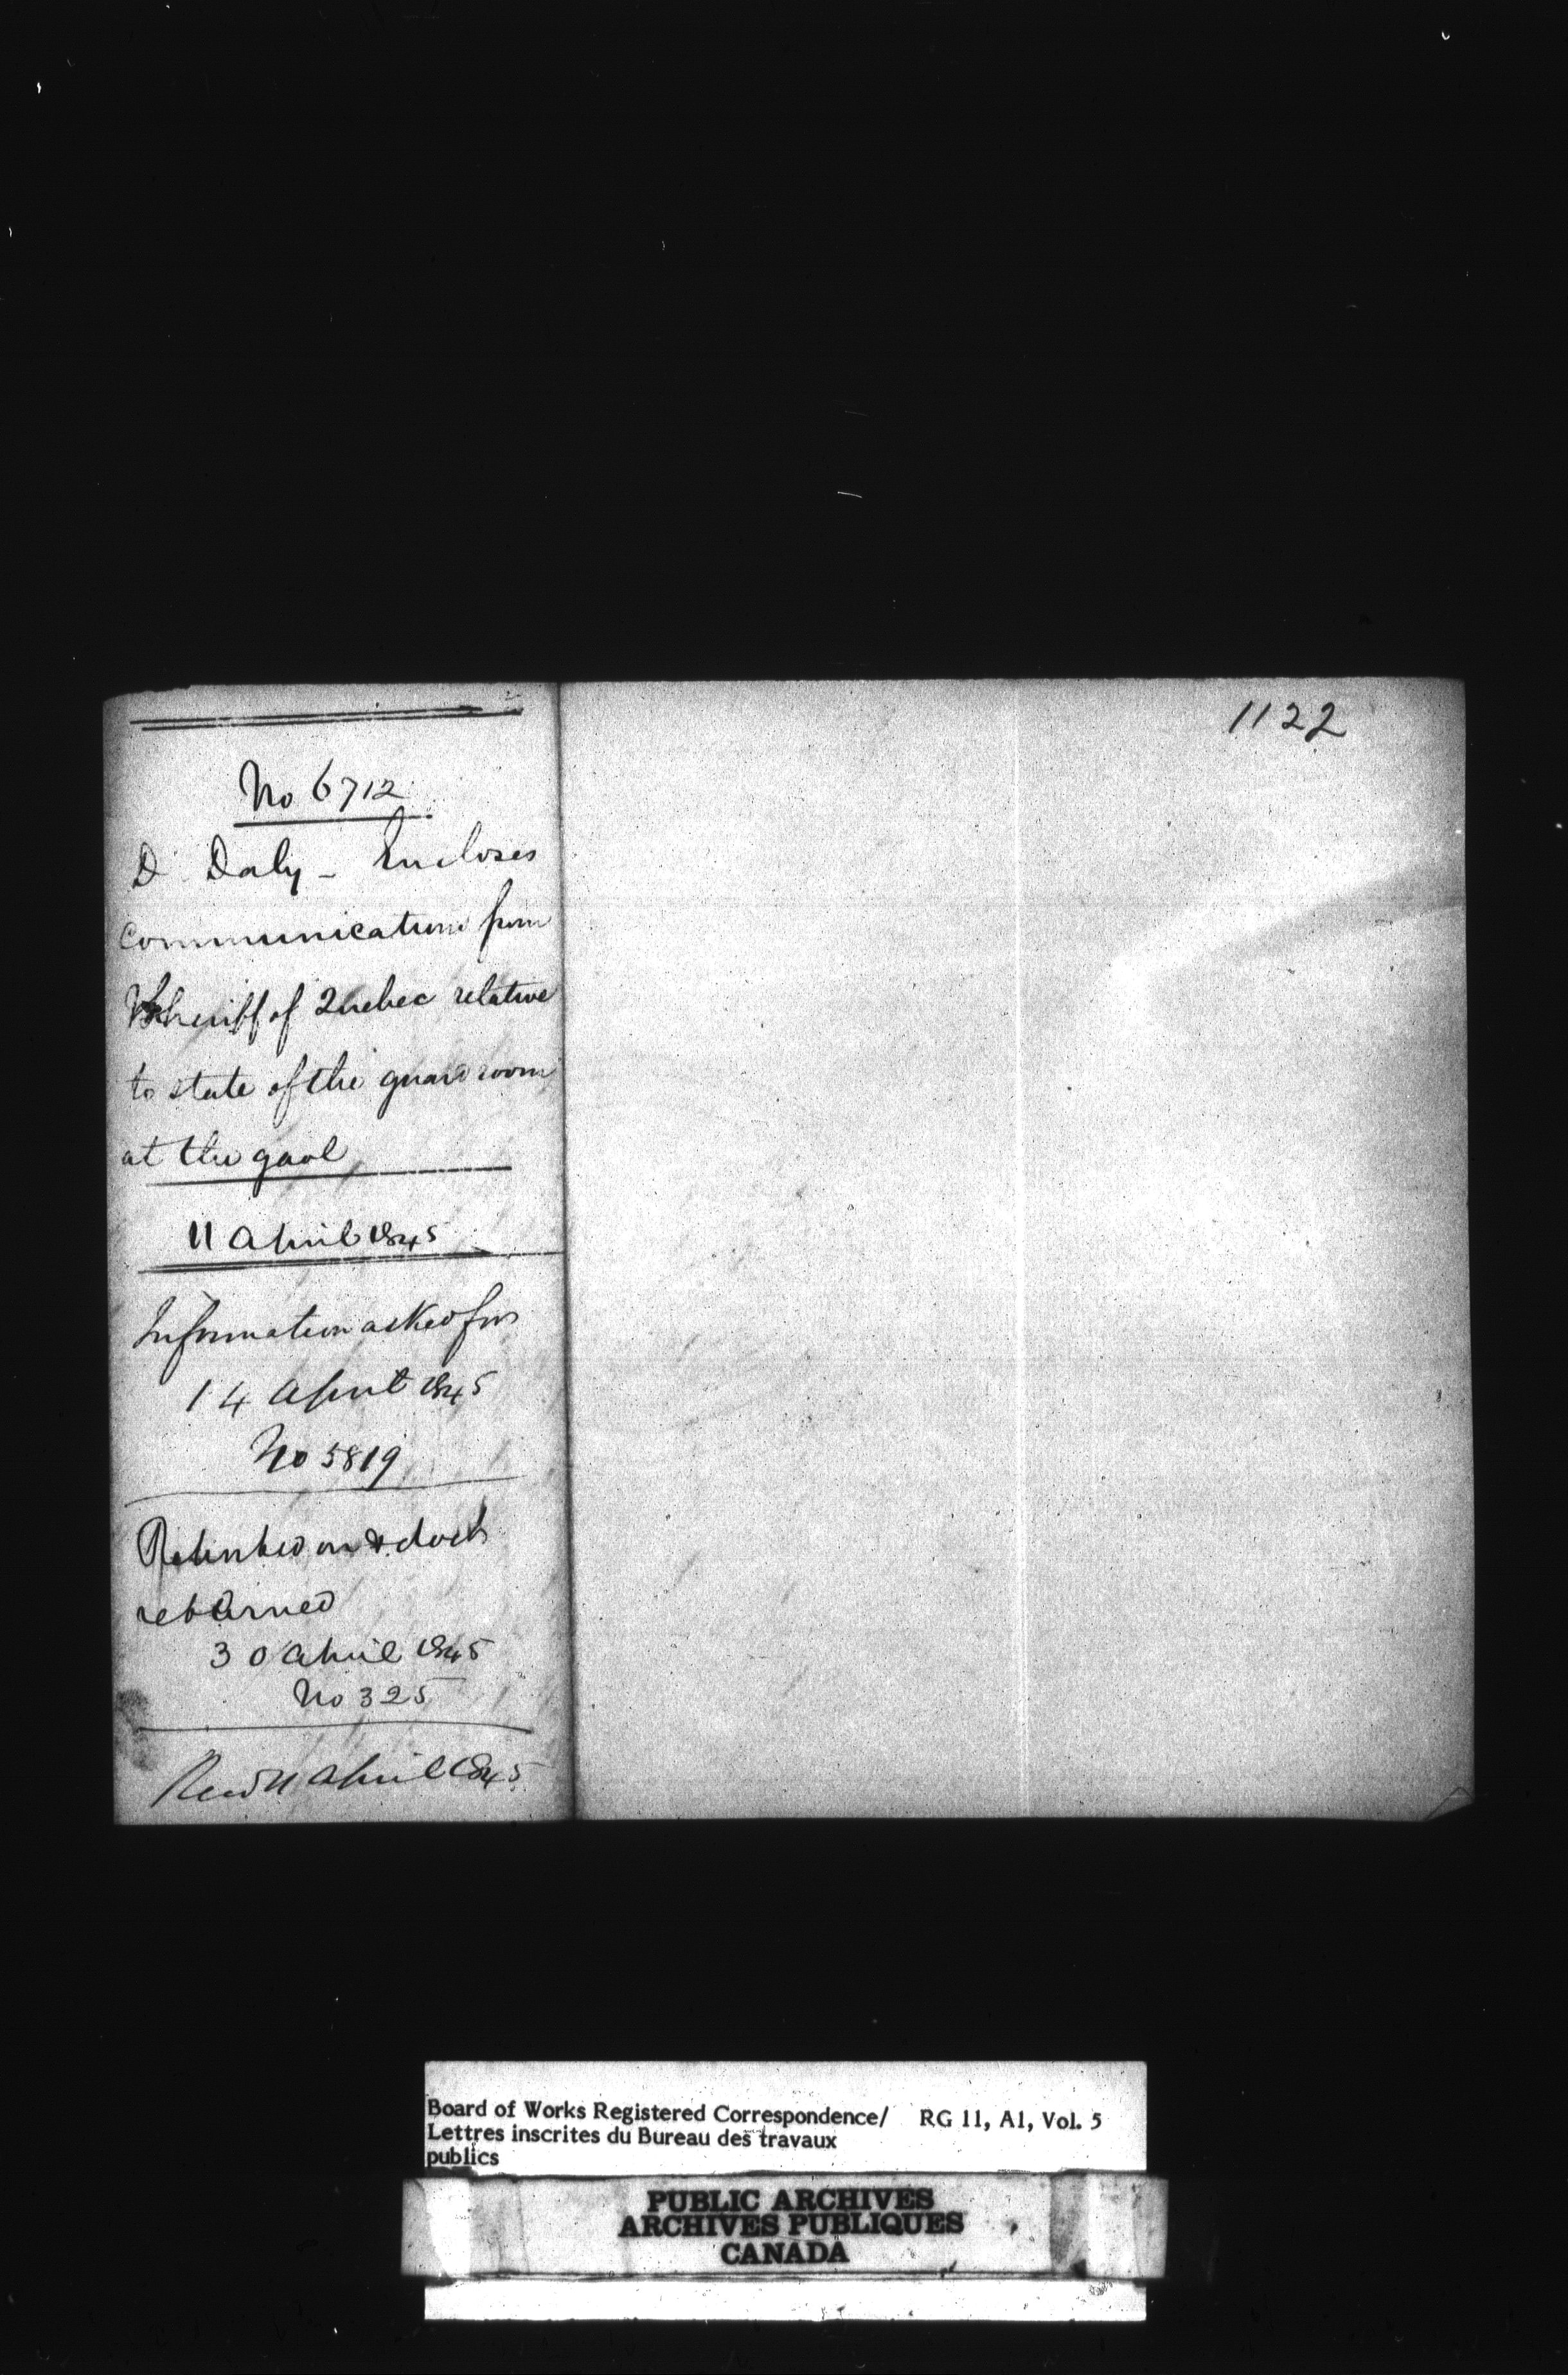 1122
No 6712
D Daly - Encloses
communication from
Sheriff of Quebec relative
to state of the guard room
at the gaol
11 April 1845
Information asked for
14 April 1845
No 5819
Reported on & docts
returned
30 April 1845
No 325
Recd 11 April 1845
Board of Works Registered Correspondence/ RG 11, A1, Vol. 5
Lettres inscrites du Bureau des travaux
publics
PUBLIC ARCHIVES
ARCHIVES PUBLIQUES
CANADA